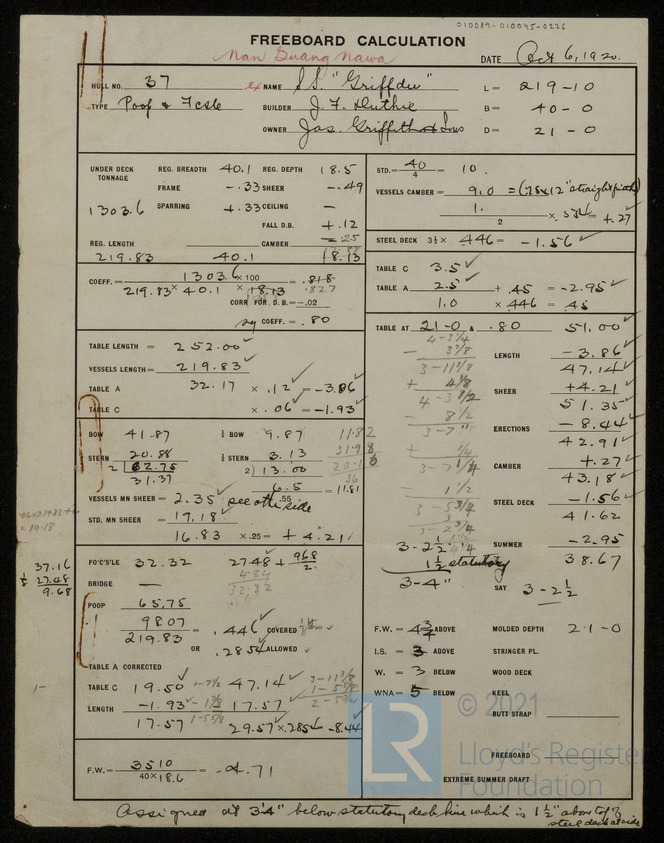 010089-010095-0226
FREEBOARD CALCULATION
Nan Guang Nawa
DATE Oct 6, 1920.
HULL NO. 37 ex NAME S.S. "Griffdu" L= 219-10
TYPE Poop & Fcsle BUILDER J. F. Duthie B= 40-0
OWNER Jas. Griffiths & Sons D= 21-0
UNDER DECK TONNAGE REG. BREADTH 40.1 REG. DEPTH 18.5
FRAME -.33 SHEER -.49
1303.6 SPARRING +.33 CEILING —
FALL D.B. +.12
REG. LENGTH CAMBER -.25
219.83 40.1 18.13
COEFF. = 1303.6 × 100 = .818
219.83 × 40.1 × 18.13 .827
CORR FOR D.B. = -.02
say COEFF. = .80
TABLE LENGTH = 252.00
VESSELS LENGTH = 219.83
TABLE A 32.17 × .12 = -3.86
TABLE C × .06 = -1.93
BOW 41.87 ½ BOW 9.87 11.82
STERN 20.88 ½ STERN 3.13 31.98
2 | 62.75 2) 13.00
31.37 6.5 = 11.81
VESSELS MN SHEER = 2.35 see other side .55
STD. MN SHEER = 19.18
16.83 × .25 = + 4.21
FO'C'S'LE 32.32 27.48 + 9.68
2
37.16
27.48
9.68
BRIDGE —
POOP 65.75
98.07 = .446 COVERED
219.83
OR .285 ALLOWED
TABLE A CORRECTED
TABLE C 19.50 47.14
LENGTH -1.93 17.57
17.57 29.57 × .285 = -8.44
F.W. = 3510 = -4.71
40 × 18.6
STD. = 40 = 10.
4
VESSELS CAMBER = 9.0 = (.75 × 12" straight
1. × .554 = +.27
2
STEEL DECK 3½ × .446 = -1.56
TABLE C 3.5
TABLE A 2.5 + .45 = -2.95
1.0 × .446 = .45
TABLE AT 21-0 & .80 51.00
LENGTH -3.86
47.14
SHEER +4.21
51.35
ERECTIONS -8.44
42.91
CAMBER +.27
43.18
STEEL DECK -1.56
41.62
SUMMER -2.95
38.67
SAY 3-2½
4-3¼
3-11⅜
3-2½
1½ statutory
3-4"
F.W. = 4¾ ABOVE MOLDED DEPTH 21-0
I.S. = 3 ABOVE STRINGER PL.
W. = 3 BELOW WOOD DECK
WNA = 5 BELOW KEEL
BUTT STRAP
FREEBOARD
EXTREME SUMMER DRAFT
LR
© 2021
Lloyd's Register
Foundation
Assigned at 3'4" below statutory deck line which is 1½" above top of
steel deck at side